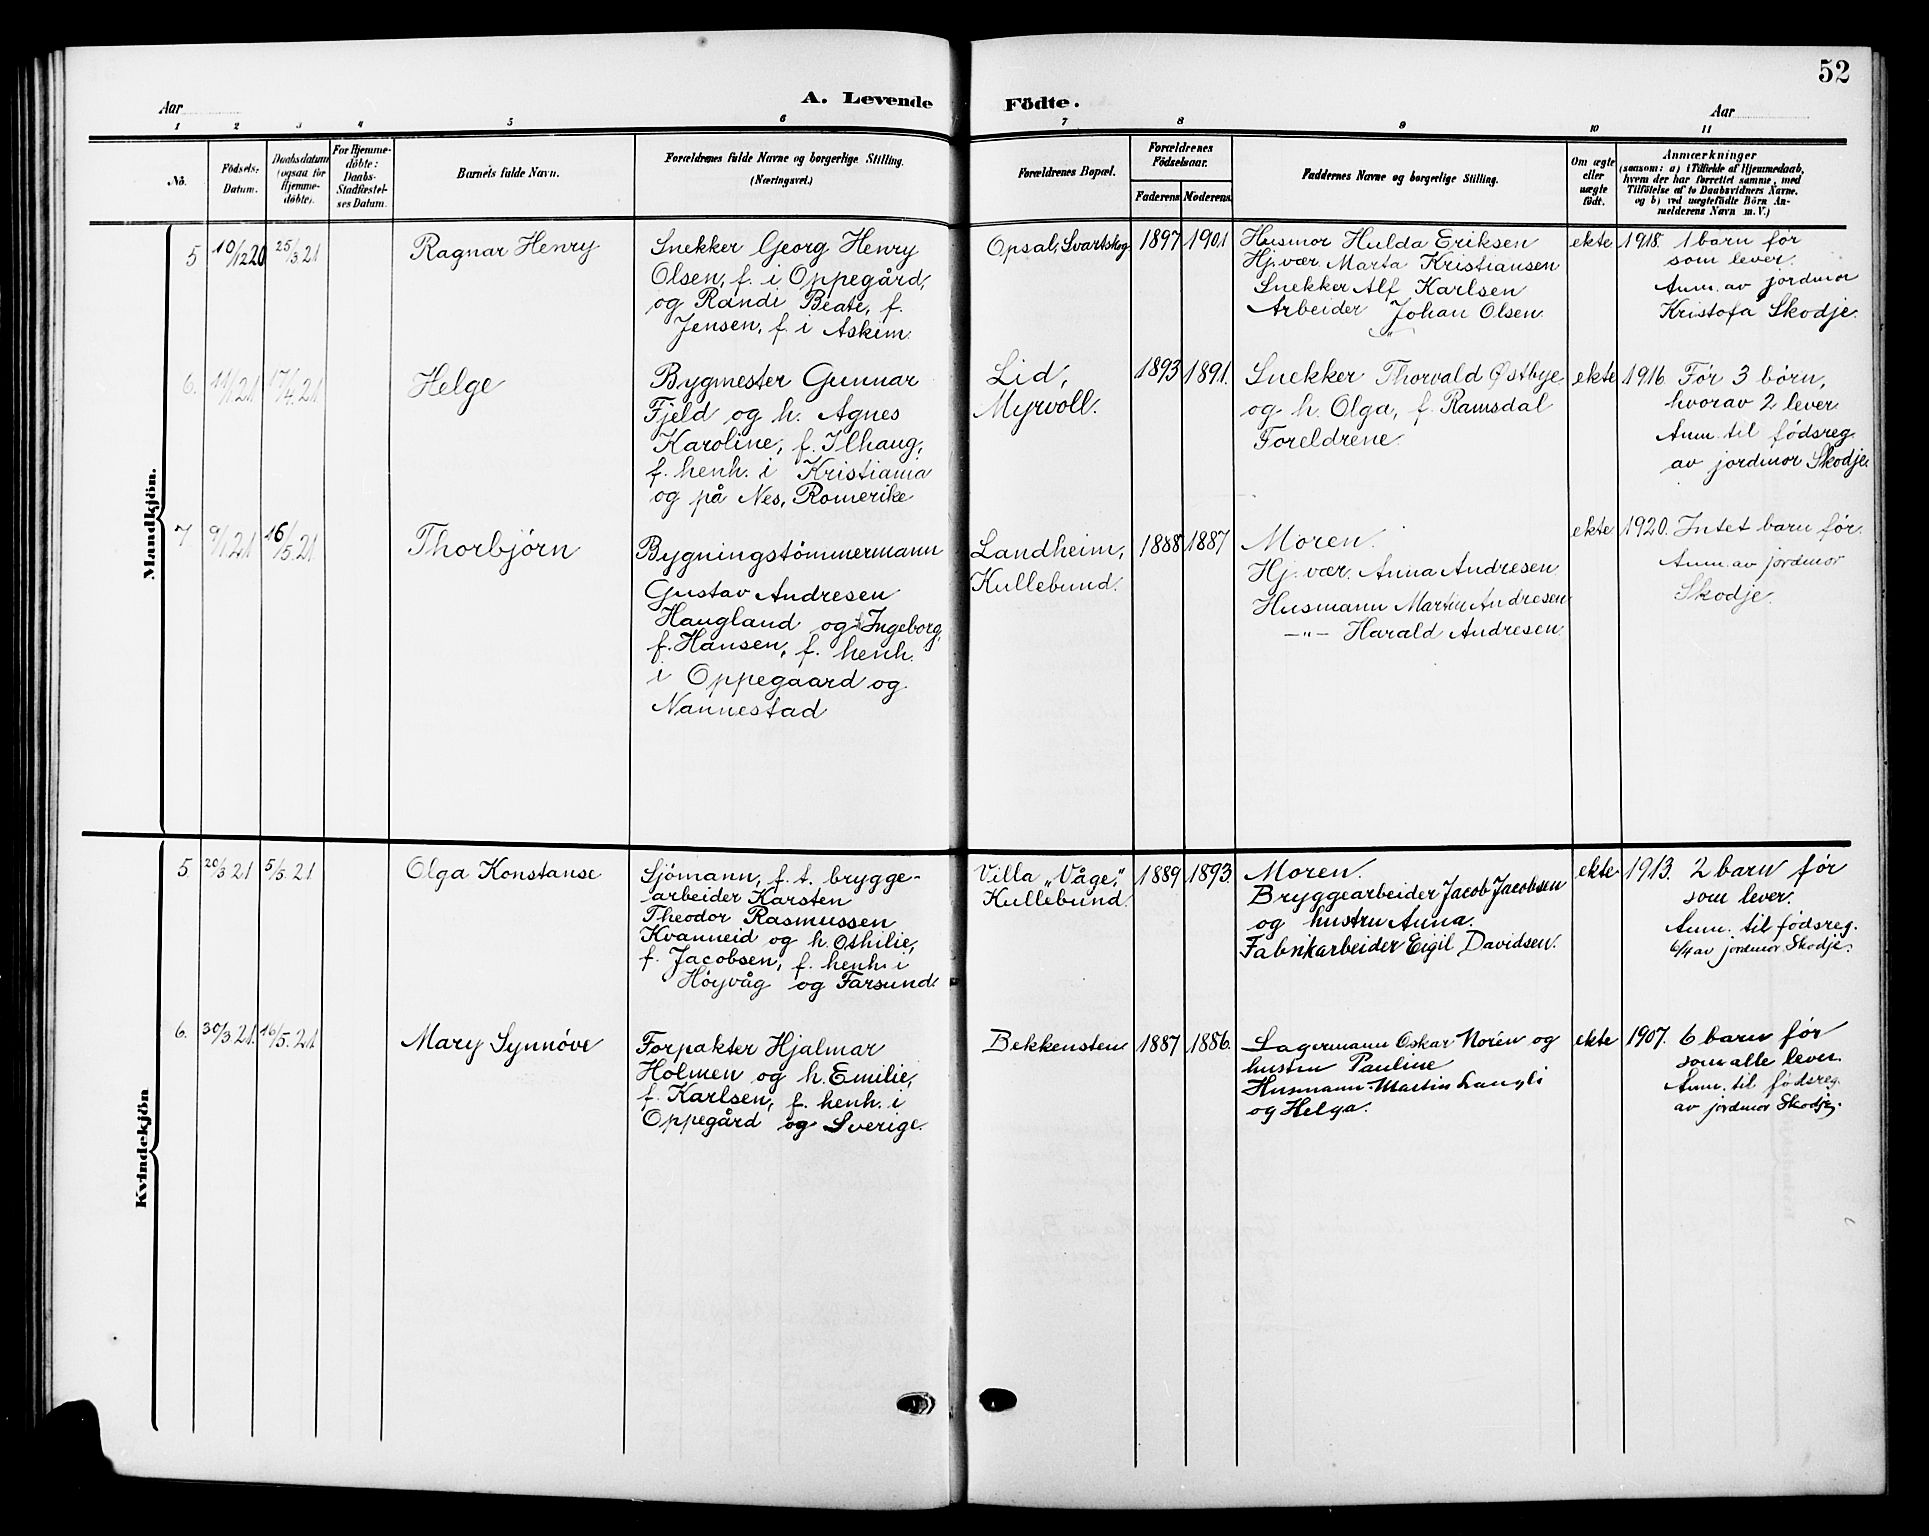 52
Aar
A. Levende
Födte.
Aar
1 2 3 4 5 6 7 8 9 10 11
No.
Födsels-
Datum.
Daabsdatum
(ogsaa for
Hjemme-
döbte).
For Hjemme-
döbte:
Daabs-
Stadfæstel-
ses Datum.
Barnets fulde Navn.
Forældrenes fulde Navne og borgerlige Stilling.
(Næringsvei.)
Forældrenes Bopæl.
Forældrenes
Födselsaar.
Faderens
Moderens
Faddernes Navne og borgerlige Stilling.
Om ægte
eller
uægte
födt.
Anmærkninger
(saasom: a) i Tilfælde af Hjemmedaab,
hvem der har forrettet samme, med
Tilföielse af to Daabsvidners Navne,
og b) ved uægtefödte Börn An-
melderens Navn m. V.)
Mandkjön.
5
10/12 20
25/3 21
Ragnar Henry
Snekker Georg Henry
Olsen, f. i Oppegård,
og Randi Beate, f.
Jensen, f. i Askim.
Opsal, Svartskog
1897
1901
Husmor Hulda Eriksen
Hj. vær. Marta Kristiansen
Snekker Alf Karlsen
Arbeider Johan Olsen
ekte
1918. 1 barn før
som lever.
Anm. av jordmor
Kristofa Skodje.
6.
11/1 21
17/4 21
Helge
Bygmester Gunnar
Fjeld og h. Agnes
Karoline, f. Ilhaug,
f. henh. i Kristiania
og på Nes, Romerike
Lid,
Myrvoll.
1893
1891.
Snekker Thorvald Østbye
og h. Olga, f. Ramsdal
Foreldrene
ekte
1916. Før 3 børn,
hvorav 2 lever
Anm. til fødsreg.
av jordmor Skodje
7
9/1 21
16/5 21
Thorbjørn
Bygningstømmermann
Gustav Andresen
Haugland og Ingeborg,
f. Hansen, f. henh.
i Oppegaard og
Nannestad
Landheim,
Kullebund.
1888
1887
Moren.
Hj. vær. Anna Andresen
Husmann Martin Andresen
—"— Harald Andresen
ekte
1920. Intet barn før.
Anm. av jordmor
Skodje.
Kvindekjön
5
20/3 21
5/5 21
Olga Konstanse
Sjömann, f. t. brygge-
arbeider Karsten
Theodor Rasmussen
Kvanneid og h. Othilie,
f. Jacobsen, f. henh. i
Høyvåg og Farsund.
Villa "Våge",
Kullebund
1889
1893.
Moren.
Bryggearbeider Jacob Jacobsen
og hustru Anna.
Fabrikarbeider Eigil Davidsen.
ekte
1913. 2 barn før
som lever.
Anm. til fødsreg.
6/4 av jordmor Skodje.
6.
30/3 21.
16/5 21
Mary Synnöve
Forpakter Hjalmar
Holmen og h. Emilie,
f. Karlsen, f. henh. i
Oppegård og Sverige.
Bekkensten
1887
1886.
Lagermann Oskar Norén og
hustru Pauline
Husmann Martin Langli
og Helga.
ekte
1907. 6 barn før
som alle lever.
Anm. til fødsreg.
av jordmor Skodje.